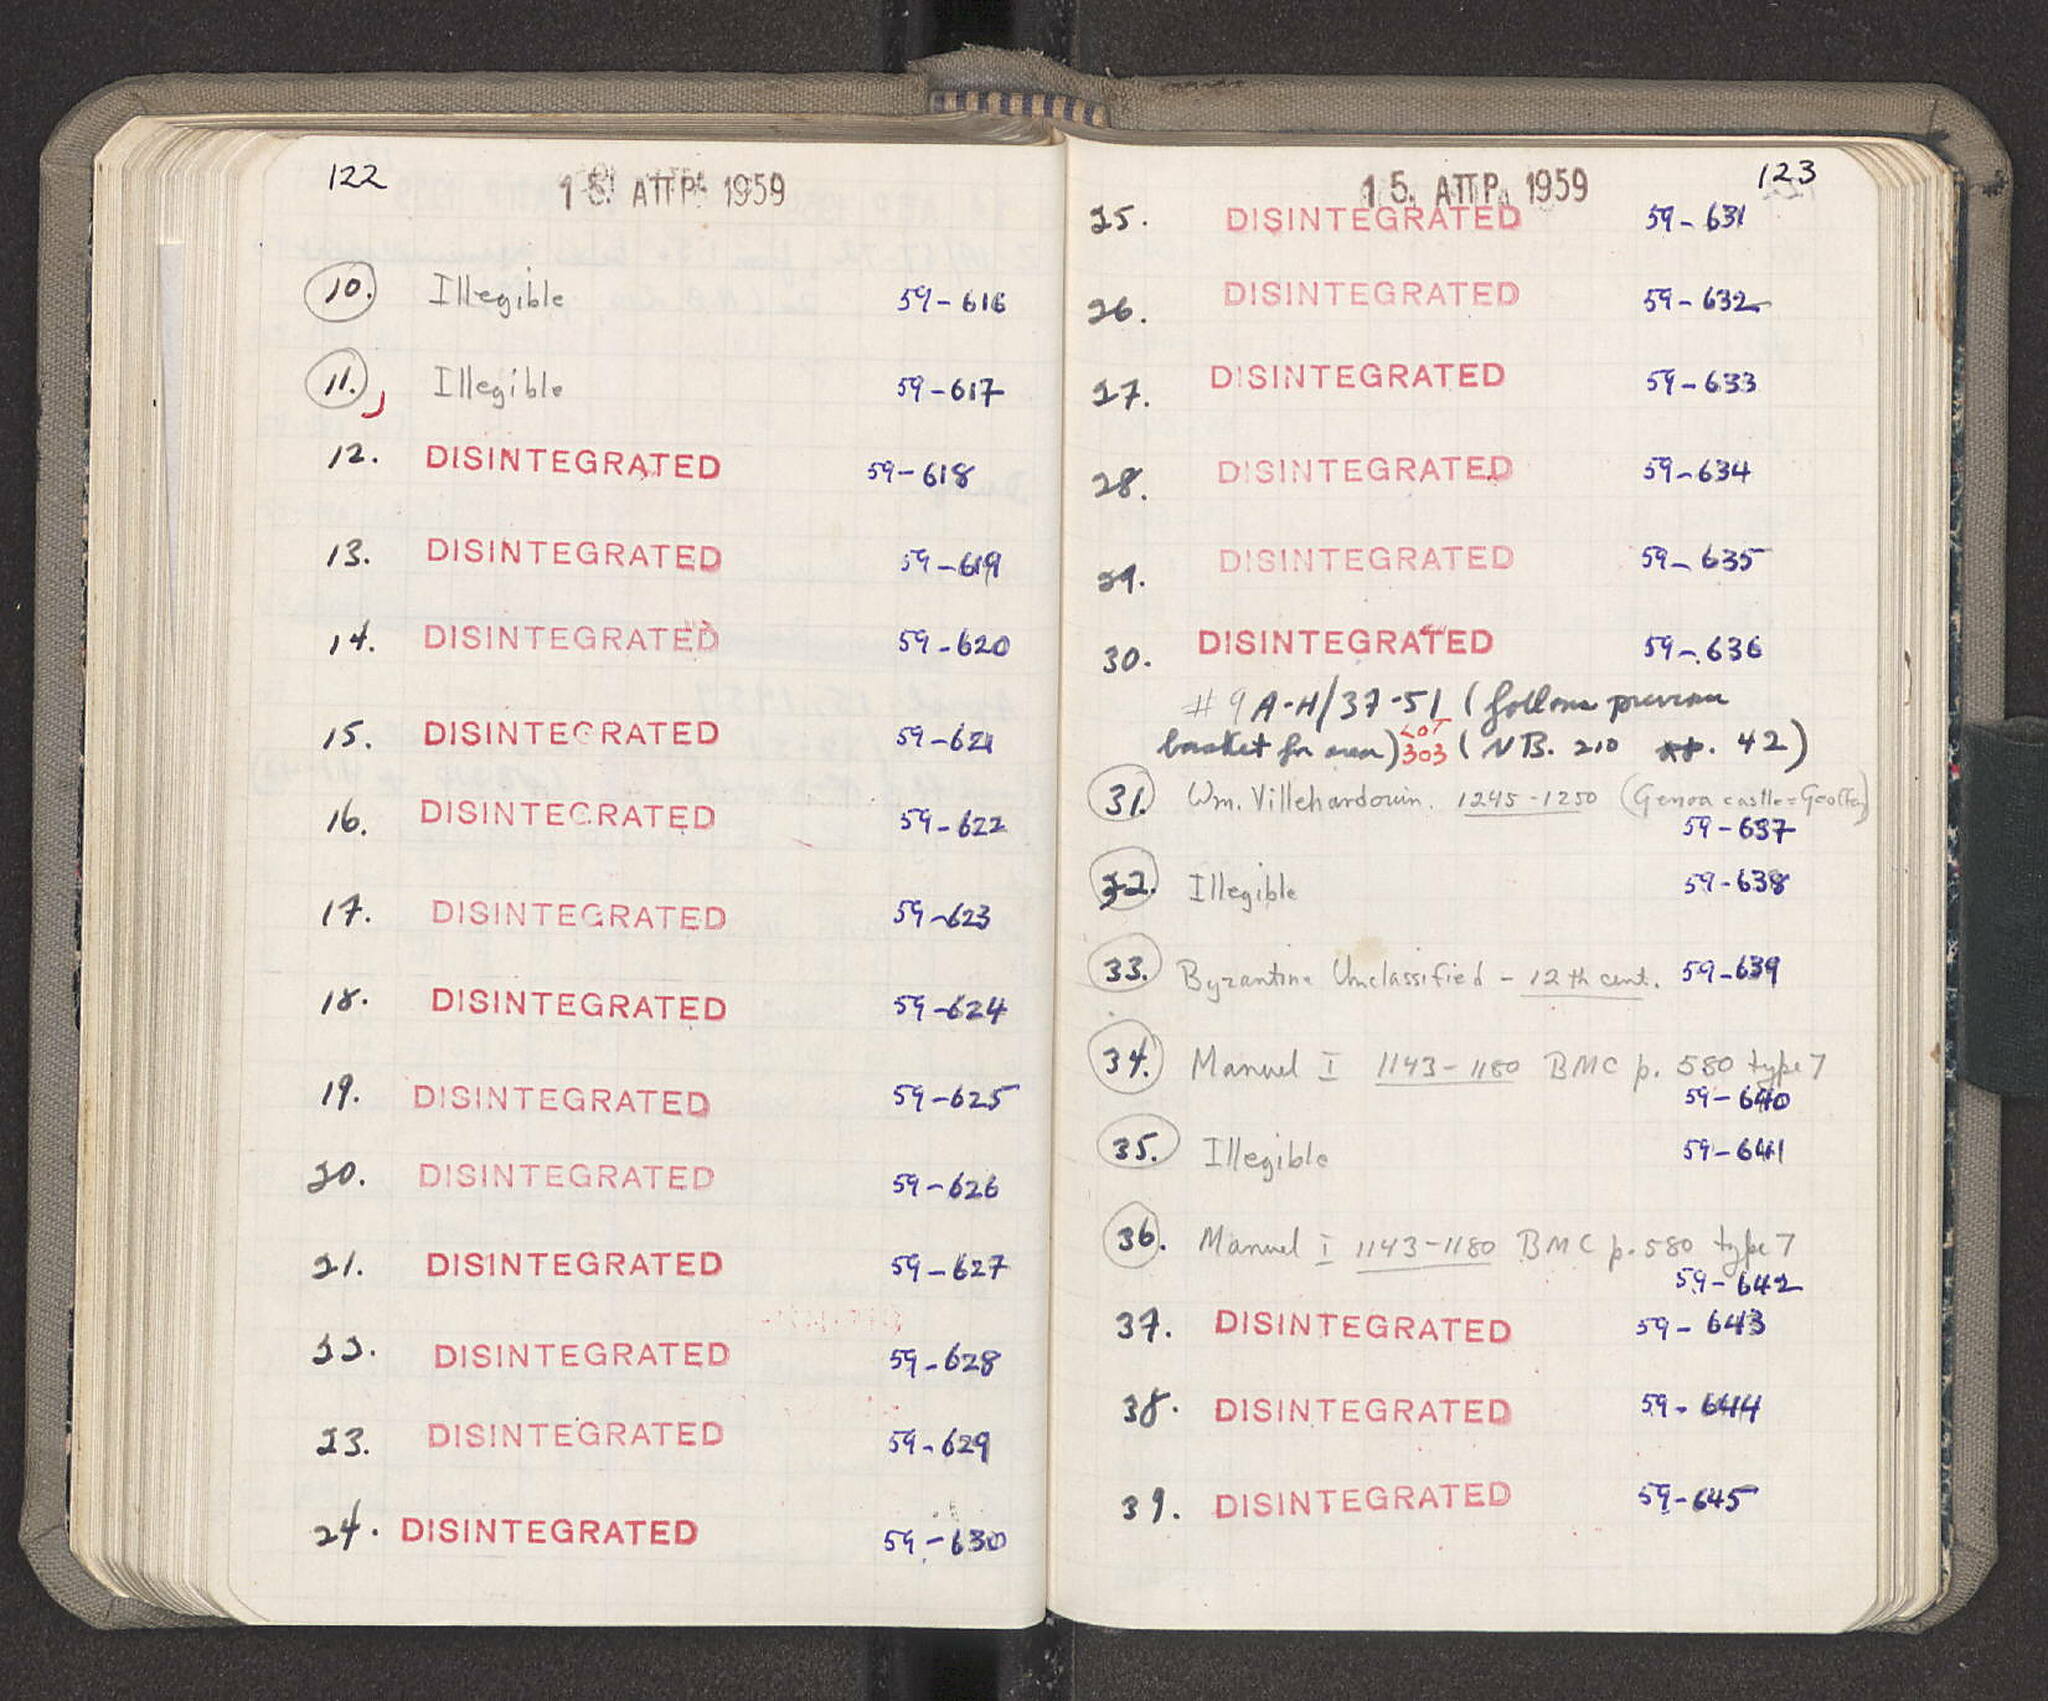 122
15. ΑΠΡ. 1959
10. Illegible 59-616
11. Illegible 59-617
12. DISINTEGRATED 59-618
13. DISINTEGRATED 59-619
14. DISINTEGRATED 59-620
15. DISINTEGRATED 59-621
16. DISINTEGRATED 59-622
17. DISINTEGRATED 59-623
18. DISINTEGRATED 59-624
19. DISINTEGRATED 59-625
20. DISINTEGRATED 59-626
21. DISINTEGRATED 59-627
22. DISINTEGRATED 59-628
23. DISINTEGRATED 59-629
24. DISINTEGRATED 59-630
123
15. ΑΠΡ. 1959
25. DISINTEGRATED 59-631
26. DISINTEGRATED 59-632
27. DISINTEGRATED 59-633
28. DISINTEGRATED 59-634
29. DISINTEGRATED 59-635
30. DISINTEGRATED 59-636
#9 A-H/37-51 (follows previous
basket for area) LOT 303 (NB. 210 . 42)
31. Wm. Villehardouin. 1245-1250 (Genoa castle=Geoffrey)
59-637
32. Illegible 59-638
33. Byzantine Unclassified - 12th cent. 59-639
34. Manuel I 1143-1180 BMC p. 580 type 7
59-640
35. Illegible 59-641
36. Manuel I 1143-1180 BMC p. 580 type 7
59-642
37. DISINTEGRATED 59-643
38. DISINTEGRATED 59-644
39. DISINTEGRATED 59-645